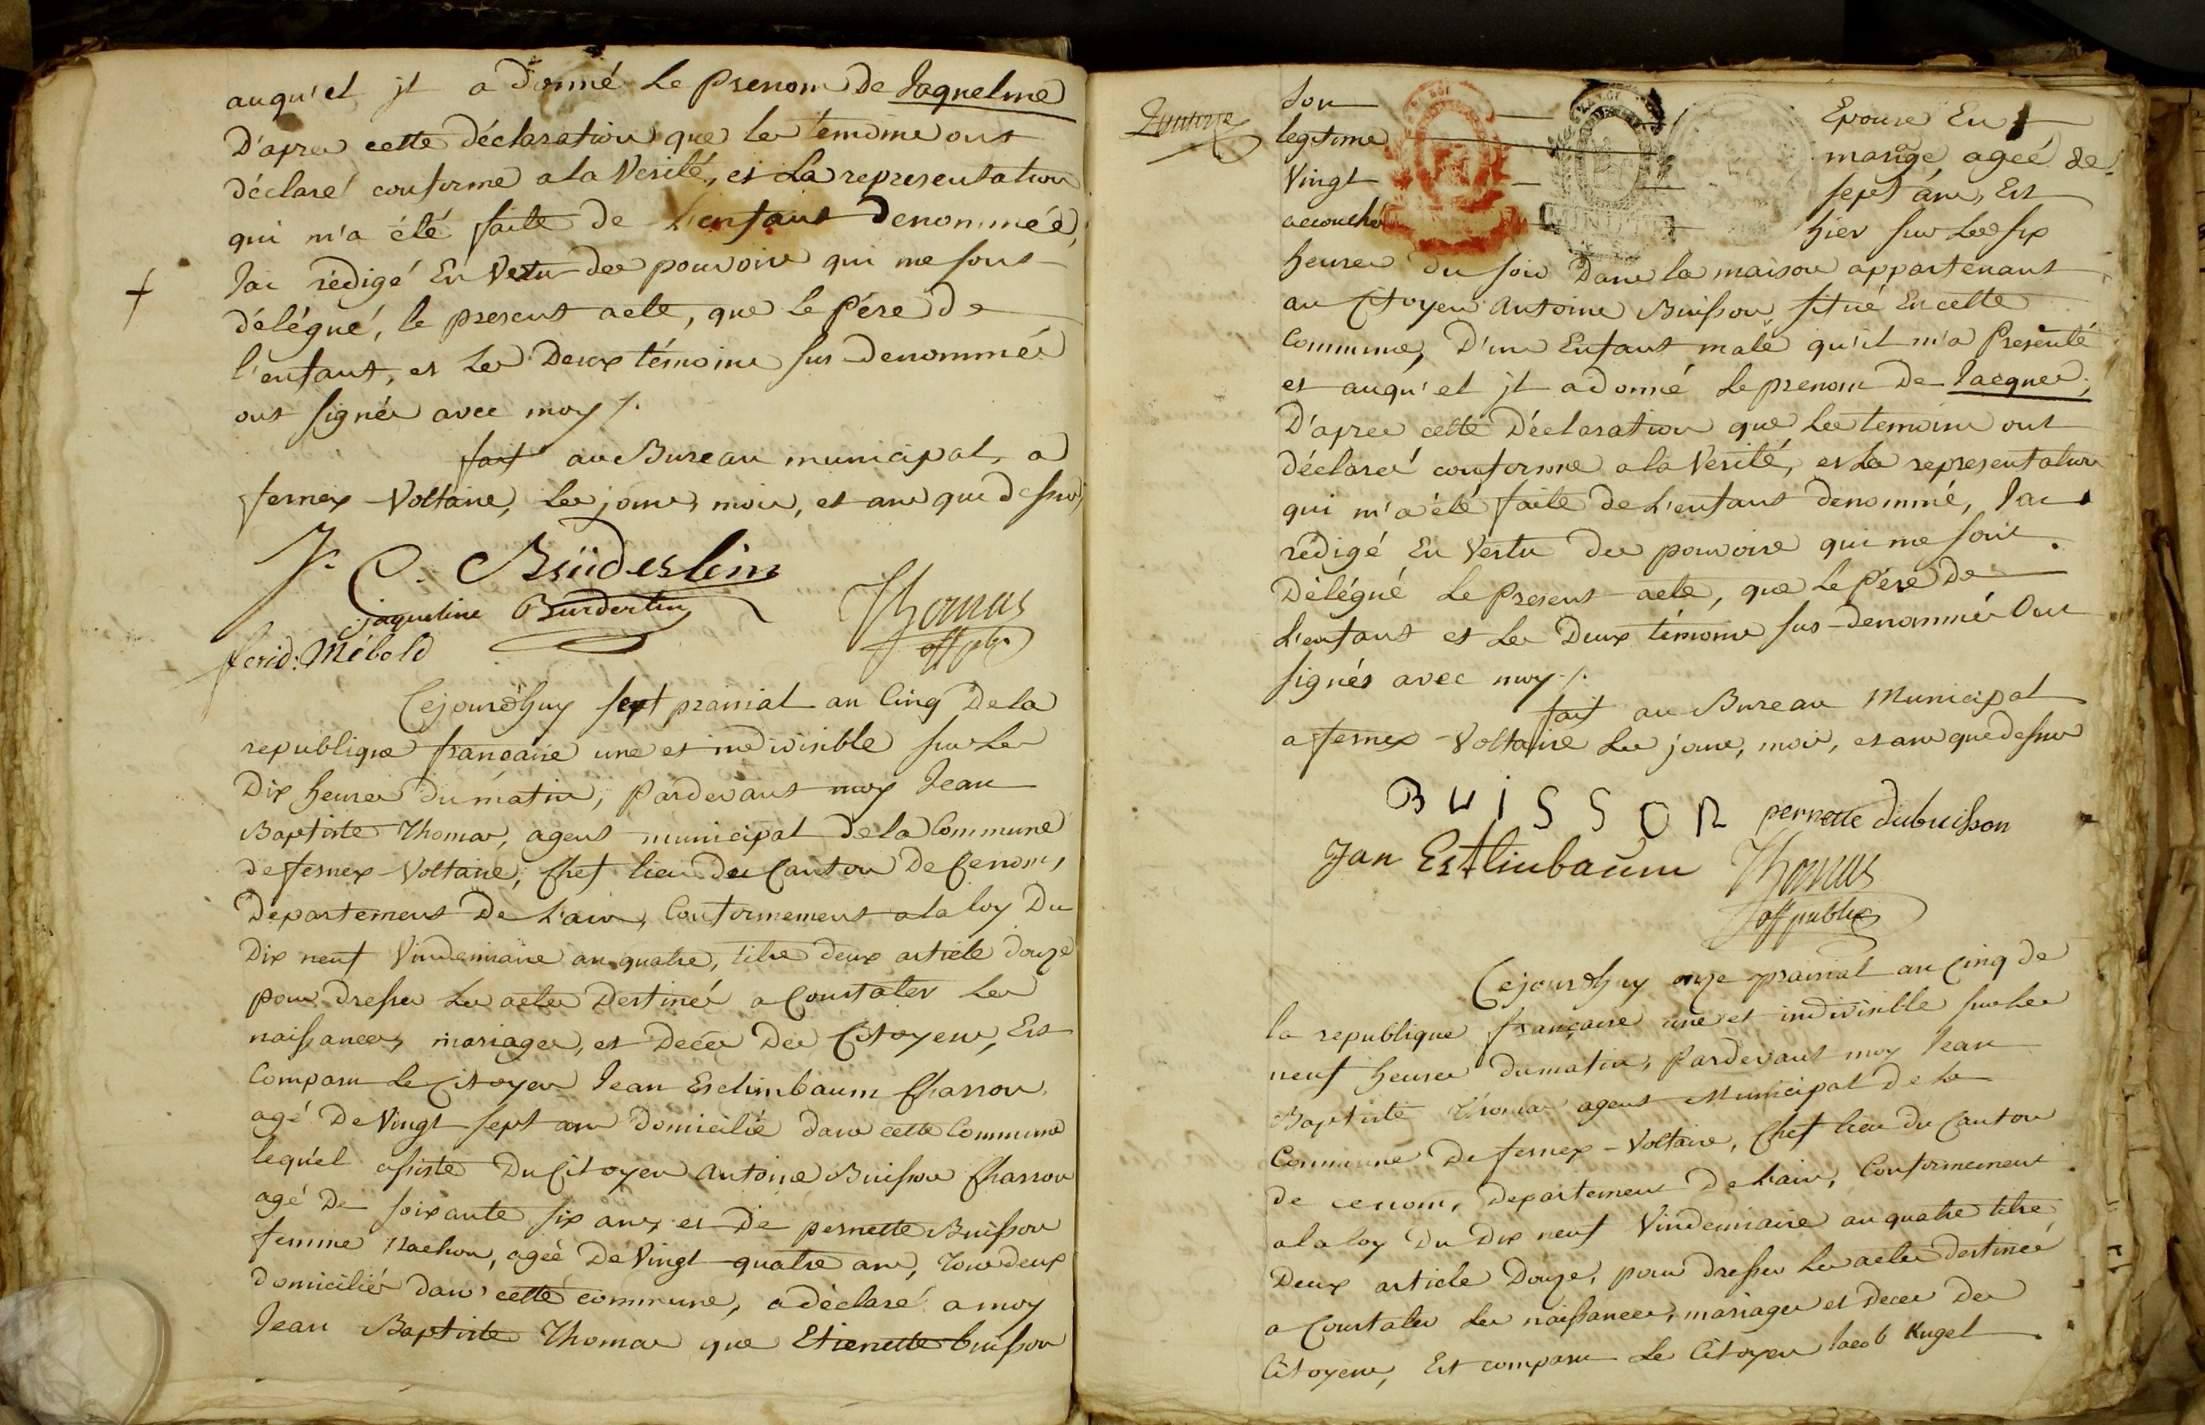 auqu'el jl a donné le prenom de Jaqueline
D'après cette déclaration que les temoins ont
déclaré conforme a la Verité, et la representation
qui m'a été faite de L'enfant denommée,
J'ai rédigé En Vertu des pouvoirs qui me sont
délégué, le present acte, que le Pére de
l'enfant, et les Deux témoins sus-denommés
ont signés avec moy /.
fait au Bureau municipal, a
fernex-Voltaire, les jour, mois, et an que dessus
J. C. Brüderlin
jaqueline Burderlin
Thomas
off pb.
ferid: Mébold
Cejourd'huy sept prairial an Cinq De la
republique française une et indivisible sur les
Dix heures du matin, pardevant moy Jean
Baptiste Thomas, agent municipal de la Commune
de fernex-Voltaire, Chef lieu du Canton De Cenom,
Departement De L'ain, Conformement a la loy Du
Dix neuf Vindemiaire an quatre, titre deux article douze
pour dresser les actes Destinés a Constater les
naissances, mariages, et Decès Des Citoyens, Est
Comparu Le Citoyen Jean Eschimbaum Charron
agé De Vingt sept ans domicilié dans cette Commune
lequ'el assisté Du Citoyen Antoine Buisson Charron
agé De soixante six ans, et De pernette Buisson
femme Nachon, agée De Vingt quatre ans, tous deux
domiciliés dans cette commune, a déclaré a moy
Jean Baptiste Thomas que Etienette buisson
Son Epouse En
legitime mariage ageé de
Vingt sept ans, Est
accouché hier sur Les six
heures du soir Dans la maison appartenant
au Citoyen Antoine Buisson situé En cette
Commune, D'un Enfant male qu'il m'a Presenté
et auqu'el jl a donné Le prenom De Jacques,
D'après cette Déclaration que Les temoins ont
déclaré conforme a la Verité, et La representation
qui m'a été faite de L'enfant denommé, J'ai
rédigé En Vertu des pouvoirs qui me sont
Délégué Le Present acte, que Le Pére De
L'enfant et Les Deux témoins sus-denommés Ont
signés avec moy /.
fait au Bureau Municipal
a fernex-Voltaire Les jour, mois, et an que dessus
BUISSON pernette dubuisson
Jan Estlinbaum Thomas
off public
Cejourd'huy onze prairial an Cinq de
la republique française une et indivisible sur Les
neuf heures du matin, Pardevant moy Jean
Baptiste Thomas agent Municipal De La
Commune De fernex-Voltaire, Chef lieu du Canton
de cenom, Departement De L'ain, Conformement
a la loy Du Dix neuf Vindemiaire an quatre titre
Deux article Douze, pour dresser Les actes destinés
a Constater Les naissances, mariages et Deces Des
Citoyens, Est comparu Le Citoyen Jacob Kugel